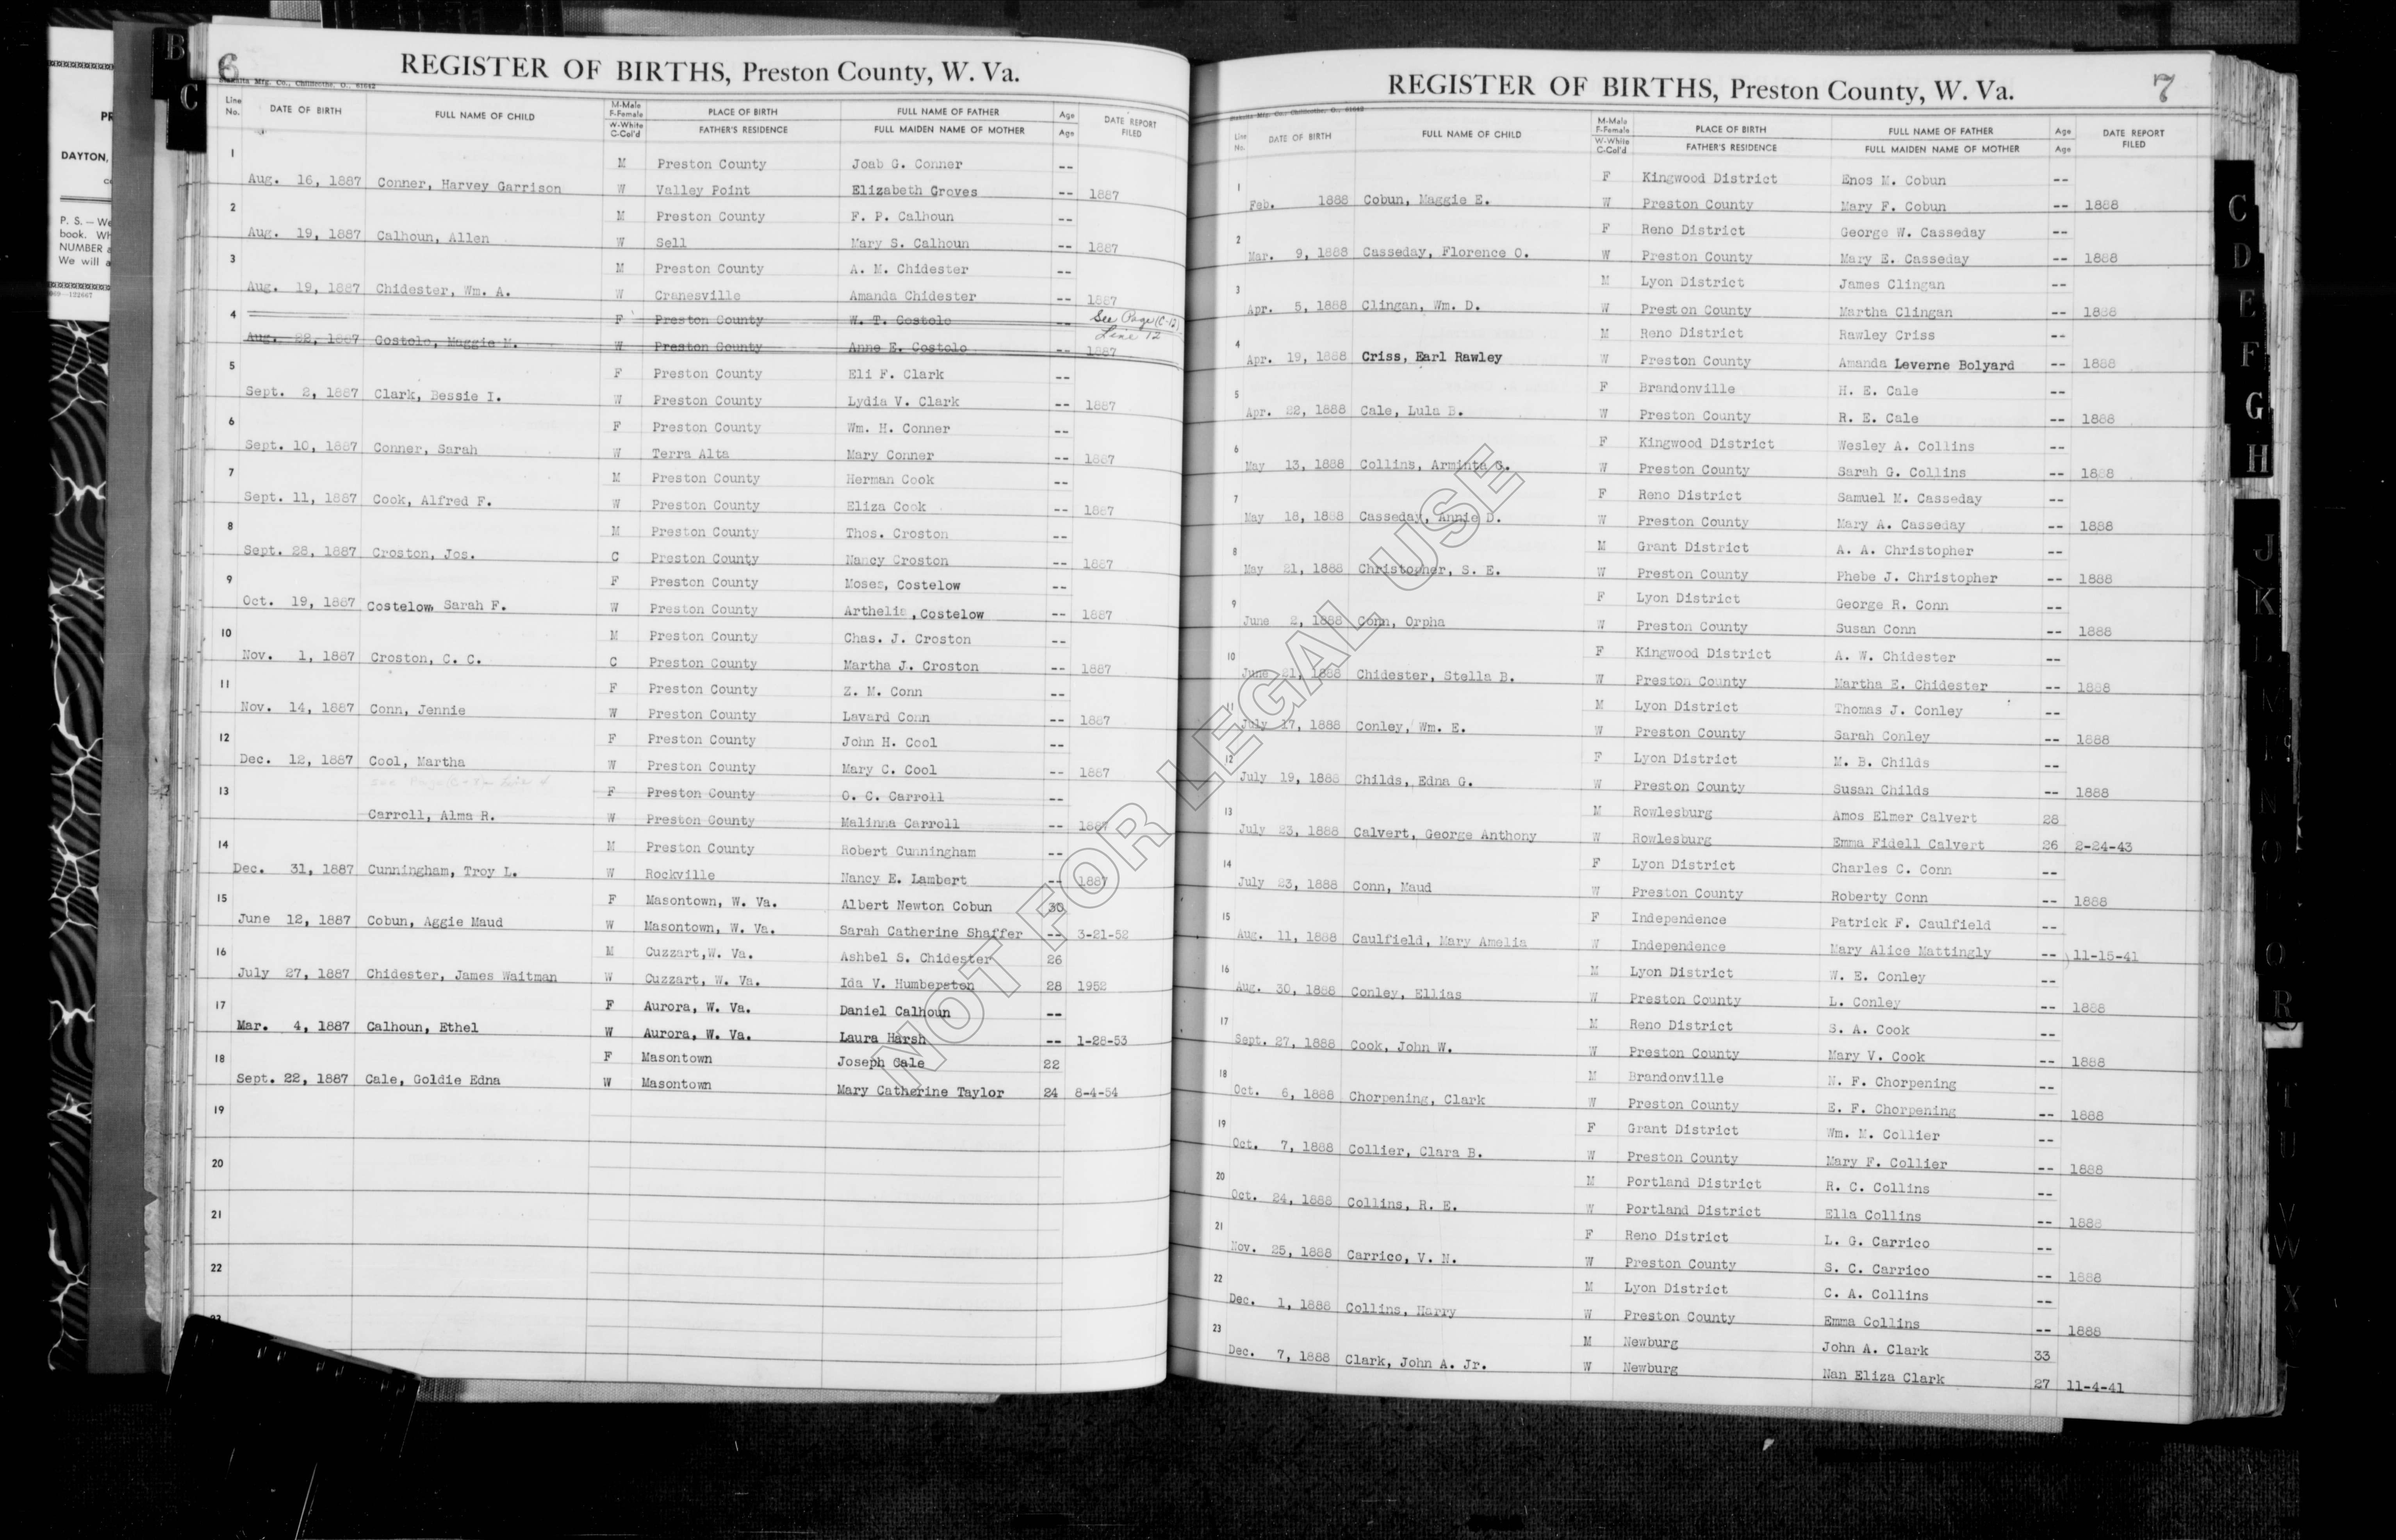 B
C
PR
DAYTON,
P. S. — We
book. Wh
NUMBER a
We will a
6
REGISTER OF BIRTHS, Preston County, W. Va.
Line No. DATE OF BIRTH FULL NAME OF CHILD M-Male F-Female W-White C-Col'd PLACE OF BIRTH FATHER'S RESIDENCE FULL NAME OF FATHER FULL MAIDEN NAME OF MOTHER Age Age DATE REPORT FILED
1 M Preston County Joab G. Conner --
Aug. 16, 1887 Conner, Harvey Garrison W Valley Point Elizabeth Groves -- 1887
2 M Preston County F. P. Calhoun --
Aug. 19, 1887 Calhoun, Allen W Sell Mary S. Calhoun -- 1887
3 M Preston County A. M. Chidester --
Aug. 19, 1887 Chidester, Wm. A. W Cranesville Amanda Chidester -- 1887
4 F Preston County W. T. Costolo -- See Page (C-12) Line 12
Aug. 22, 1887 Costolo, Maggie M. W Preston County Anne E. Costolo -- 1887
5 F Preston County Eli F. Clark --
Sept. 2, 1887 Clark, Bessie I. W Preston County Lydia V. Clark -- 1887
6 F Preston County Wm. H. Conner --
Sept. 10, 1887 Conner, Sarah W Terra Alta Mary Conner -- 1887
7 M Preston County Herman Cook --
Sept. 11, 1887 Cook, Alfred F. W Preston County Eliza Cook -- 1887
8 M Preston County Thos. Croston --
Sept. 28, 1887 Croston, Jos. C Preston County Nancy Croston -- 1887
9 F Preston County Moses, Costelow --
Oct. 19, 1887 Costelow, Sarah F. W Preston County Arthelia, Costelow -- 1887
10 M Preston County Chas. J. Croston --
Nov. 1, 1887 Croston, C. C. C Preston County Martha J. Croston -- 1887
11 F Preston County Z. M. Conn --
Nov. 14, 1887 Conn, Jennie W Preston County Lavard Conn -- 1887
12 F Preston County John H. Cool --
Dec. 12, 1887 Cool, Martha W Preston County Mary C. Cool -- 1887
13 F Preston County O. C. Carroll --
Carroll, Alma R. W Preston County Malinna Carroll -- 1887
14 M Preston County Robert Cunningham --
Dec. 31, 1887 Cunningham, Troy L. W Rockville Nancy E. Lambert -- 1887
15 F Masontown, W. Va. Albert Newton Cobun 30
June 12, 1887 Cobun, Aggie Maud W Masontown, W. Va. Sarah Catherine Shaffer -- 3-21-52
16 M Cuzzart, W. Va. Ashbel S. Chidester 26
July 27, 1887 Chidester, James Waitman W Cuzzart, W. Va. Ida V. Humberston 28 1952
17 F Aurora, W. Va. Daniel Calhoun --
Mar. 4, 1887 Calhoun, Ethel W Aurora, W. Va. Laura Harsh -- 1-28-53
18 F Masontown Joseph Cale 22
Sept. 22, 1887 Cale, Goldie Edna W Masontown Mary Catherine Taylor 24 8-4-54
19
20
21
22
REGISTER OF BIRTHS, Preston County, W. Va.
7
Line No. DATE OF BIRTH FULL NAME OF CHILD M-Male F-Female W-White C-Col'd PLACE OF BIRTH FATHER'S RESIDENCE FULL NAME OF FATHER FULL MAIDEN NAME OF MOTHER Age Age DATE REPORT FILED
1 F Kingwood District Enos M. Cobun --
Feb. 1888 Cobun, Maggie E. W Preston County Mary F. Cobun -- 1888
2 F Reno District George W. Casseday --
Mar. 9, 1888 Casseday, Florence O. W Preston County Mary E. Casseday -- 1888
3 M Lyon District James Clingan --
Apr. 5, 1888 Clingan, Wm. D. W Preston County Martha Clingan -- 1888
4 M Reno District Rawley Criss --
Apr. 19, 1888 Criss, Earl Rawley W Preston County Amanda Leverne Bolyard -- 1888
5 F Brandonville H. E. Cale --
Apr. 22, 1888 Cale, Lula B. W Preston County R. E. Cale -- 1888
6 F Kingwood District Wesley A. Collins --
May 13, 1888 Collins, Arminta G. W Preston County Sarah G. Collins -- 1888
7 F Reno District Samuel M. Casseday --
May 18, 1888 Casseday, Annie D. W Preston County Mary A. Casseday -- 1888
8 M Grant District A. A. Christopher --
May 21, 1888 Christopher, S. E. W Preston County Phebe J. Christopher -- 1888
9 F Lyon District George R. Conn --
June 2, 1888 Conn, Orpha W Preston County Susan Conn -- 1888
10 F Kingwood District A. W. Chidester --
June 21, 1888 Chidester, Stella B. W Preston County Martha E. Chidester -- 1888
11 M Lyon District Thomas J. Conley --
July 17, 1888 Conley, Wm. E. W Preston County Sarah Conley -- 1888
12 F Lyon District M. B. Childs --
July 19, 1888 Childs, Edna G. W Preston County Susan Childs -- 1888
13 M Rowlesburg Amos Elmer Calvert 28
July 23, 1888 Calvert, George Anthony W Rowlesburg Emma Fidell Calvert 26 2-24-43
14 F Lyon District Charles C. Conn --
July 23, 1888 Conn, Maud W Preston County Roberty Conn -- 1888
15 F Independence Patrick F. Caulfield --
Aug. 11, 1888 Caulfield, Mary Amelia W Independence Mary Alice Mattingly -- 11-15-41
16 M Lyon District W. E. Conley --
Aug. 30, 1888 Conley, Ellias W Preston County L. Conley -- 1888
17 M Reno District S. A. Cook --
Sept. 27, 1888 Cook, John W. W Preston County Mary V. Cook -- 1888
18 M Brandonville N. F. Chorpening --
Oct. 6, 1888 Chorpening, Clark W Preston County E. F. Chorpening -- 1888
19 F Grant District Wm. M. Collier --
Oct. 7, 1888 Collier, Clara B. W Preston County Mary F. Collier -- 1888
20 M Portland District R. C. Collins --
Oct. 24, 1888 Collins, R. E. W Portland District Ella Collins -- 1888
21 F Reno District L. G. Carrico --
Nov. 25, 1888 Carrico, V. M. W Preston County S. C. Carrico -- 1888
22 M Lyon District C. A. Collins --
Dec. 1, 1888 Collins, Harry W Preston County Emma Collins -- 1888
23 M Newburg John A. Clark 33
Dec. 7, 1888 Clark, John A. Jr. W Newburg Nan Eliza Clark 27 11-4-41
NOT FOR LEGAL USE
C
D
E
F
G
H
J
K
L
M
N
O
R
T
U
V
W
X